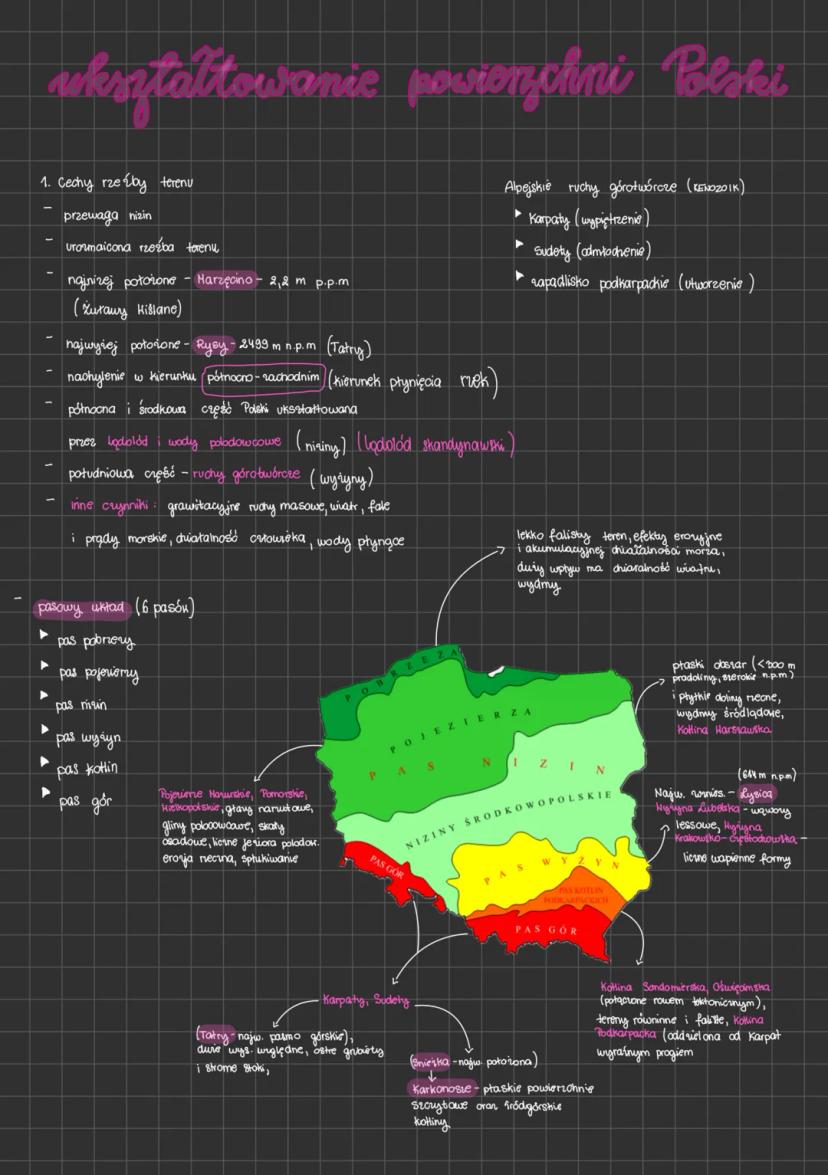 ukształtowanie powierzchni Polski
1. Cechy rzeźby terenu
- przewaga nizin
- urozmaicona rzeźba terenu
- najniżej położone - Marzęcino - 2,2 m p.p.m
(Żuławy Wiślane)
- najwyżej położone - Rysy - 2499 m n.p.m (Tatry)
- nachylenie w kierunku północno-zachodnim (kierunek płynięcia rzek)
- północna i środkowa część Polski ukształtowana
przez lądolód i wody polodowcowe (niziny) (lądolód skandynawski)
- południowa część - ruchy górotwórcze (wyżyny)
- inne czynniki: grawitacyjne ruchy masowe, wiatr, fale
i prądy morskie, działalność człowieka, wody płynące
Alpejskie ruchy górotwórcze (KENOZOIK)
▸ Karpaty (wypiętrzenie)
▸ Sudety (odmłodzenie)
▸ zapadlisko podkarpackie (utworzenie)
- pasowy układ (6 pasów)
▸ pas pobrzeży
▸ pas pojezierzy
▸ pas nizin
▸ pas wyżyn
▸ pas kotlin
▸ pas gór
lekko falisty teren, efekty erozyjne
i akumulacyjnej działalności morza,
duży wpływ ma działalność wiatru,
wydmy
płaski obszar (<300 m
pradoliny, szerokie n.p.m)
i płytkie doliny rzeczne,
wydmy śródlądowe,
Kotlina Warszawska
(614 m n.p.m)
Najw. wznies. - Łysica
Wyżyna Lubelska - wąwozy
lessowe, Wyżyna
Krakowsko-częstochowska -
liczne wapienne formy
Pojezierze Mazurskie, Pomorskie,
Wielkopolskie, głazy narzutowe,
gliny polodowcowe, skały
osadowe, liczne jeziora polodow.
erozja rzeczna, spłukiwanie
POBRZEŻA
POJEZIERZA
PAS NIZIN
NIZINY ŚRODKOWOPOLSKIE
PAS WYŻYN
PAS KOTLIN
PODKARPACKICH
PAS GÓR
PAS GÓR
Kotlina Sandomierska, Oświęcimska
(połączone rowem tektonicznym),
tereny równinne i faliste, Kotlina
Podkarpacka (oddzielona od Karpat
wyraźnym progiem
Karpaty, Sudety
(Tatry - najw. pasmo górskie),
duże wys. względne, ostre grzbiety
i strome stoki,
(Śnieżka - najw. położona)
Karkonosze - płaskie powierzchnie
szczytowe oraz śródgórskie
kotliny